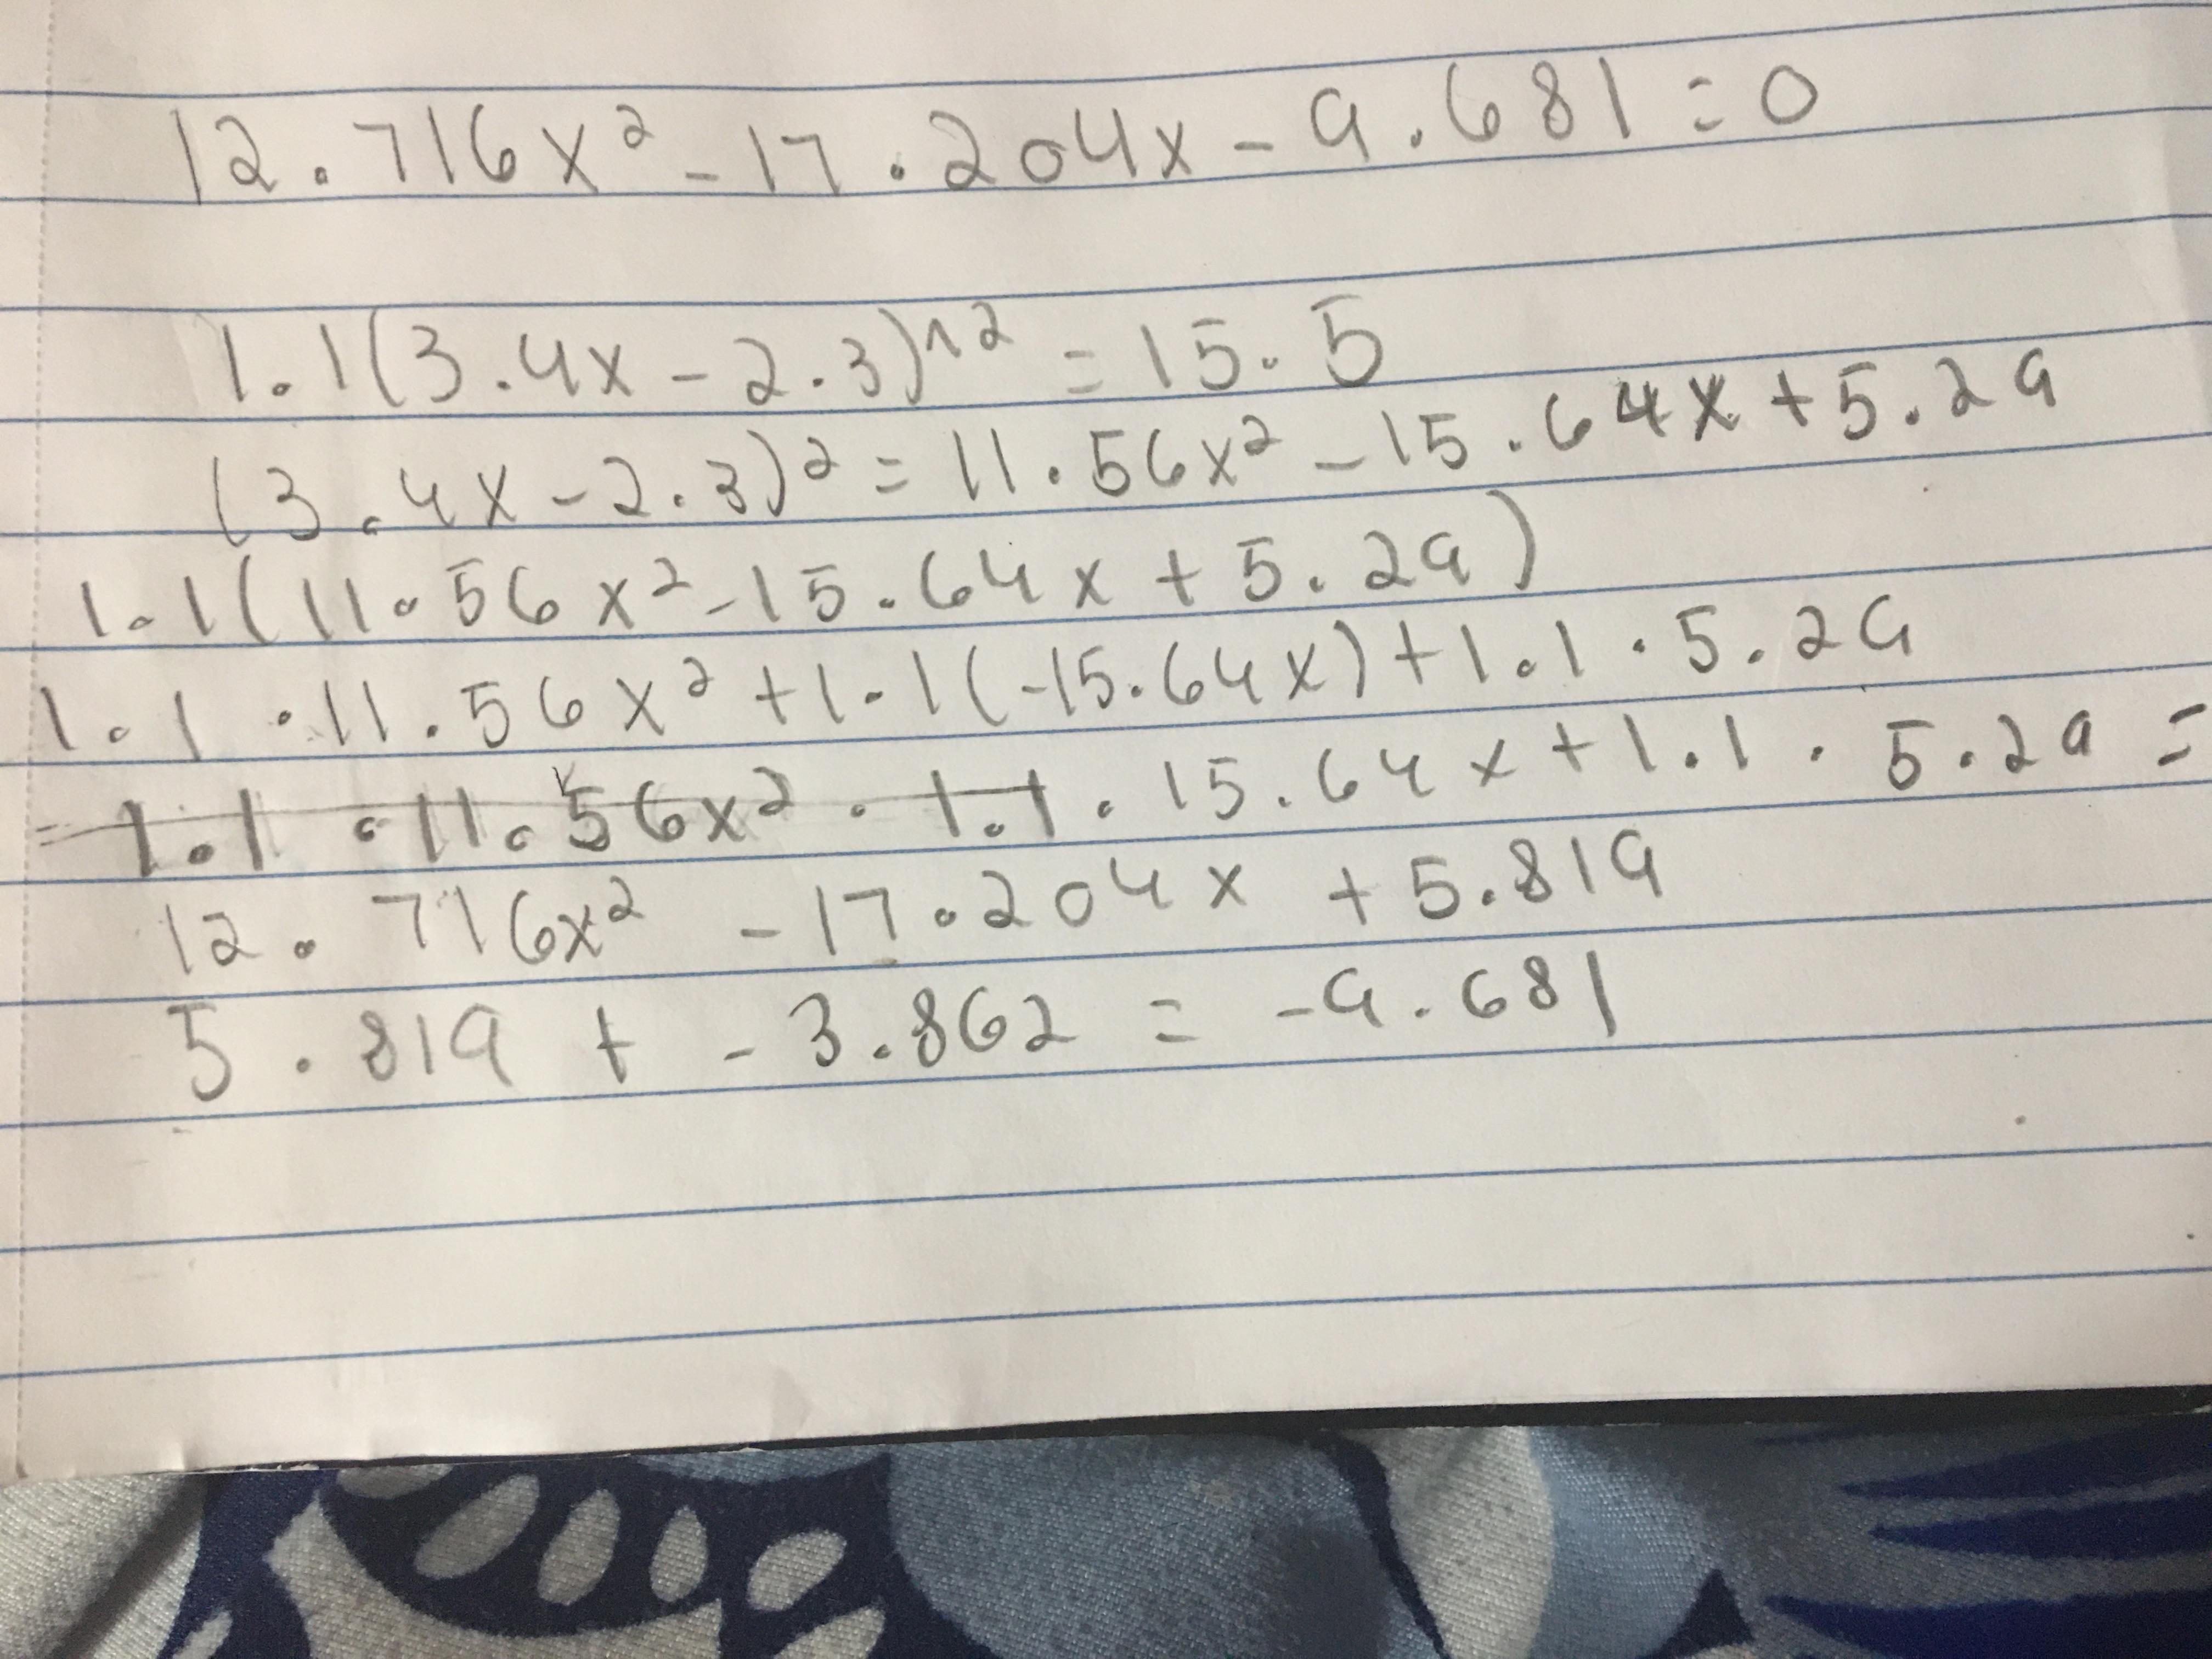 12.716x² - 17.204x - 9.681 = 0
1.1(3.4x - 2.3)^2 = 15.5
(3.4x - 2.3)² = 11.56x² - 15.64x + 5.29
1.1(11.56x² - 15.64x + 5.29)
1.1 · 11.56x² + 1.1(-15.64x) + 1.1 · 5.29
= 1.1 · 11.56x² · 1.1 · 15.64x + 1.1 · 5.29 =
12.716x² - 17.204x + 5.819
5.819 + - 3.862 = -9.681